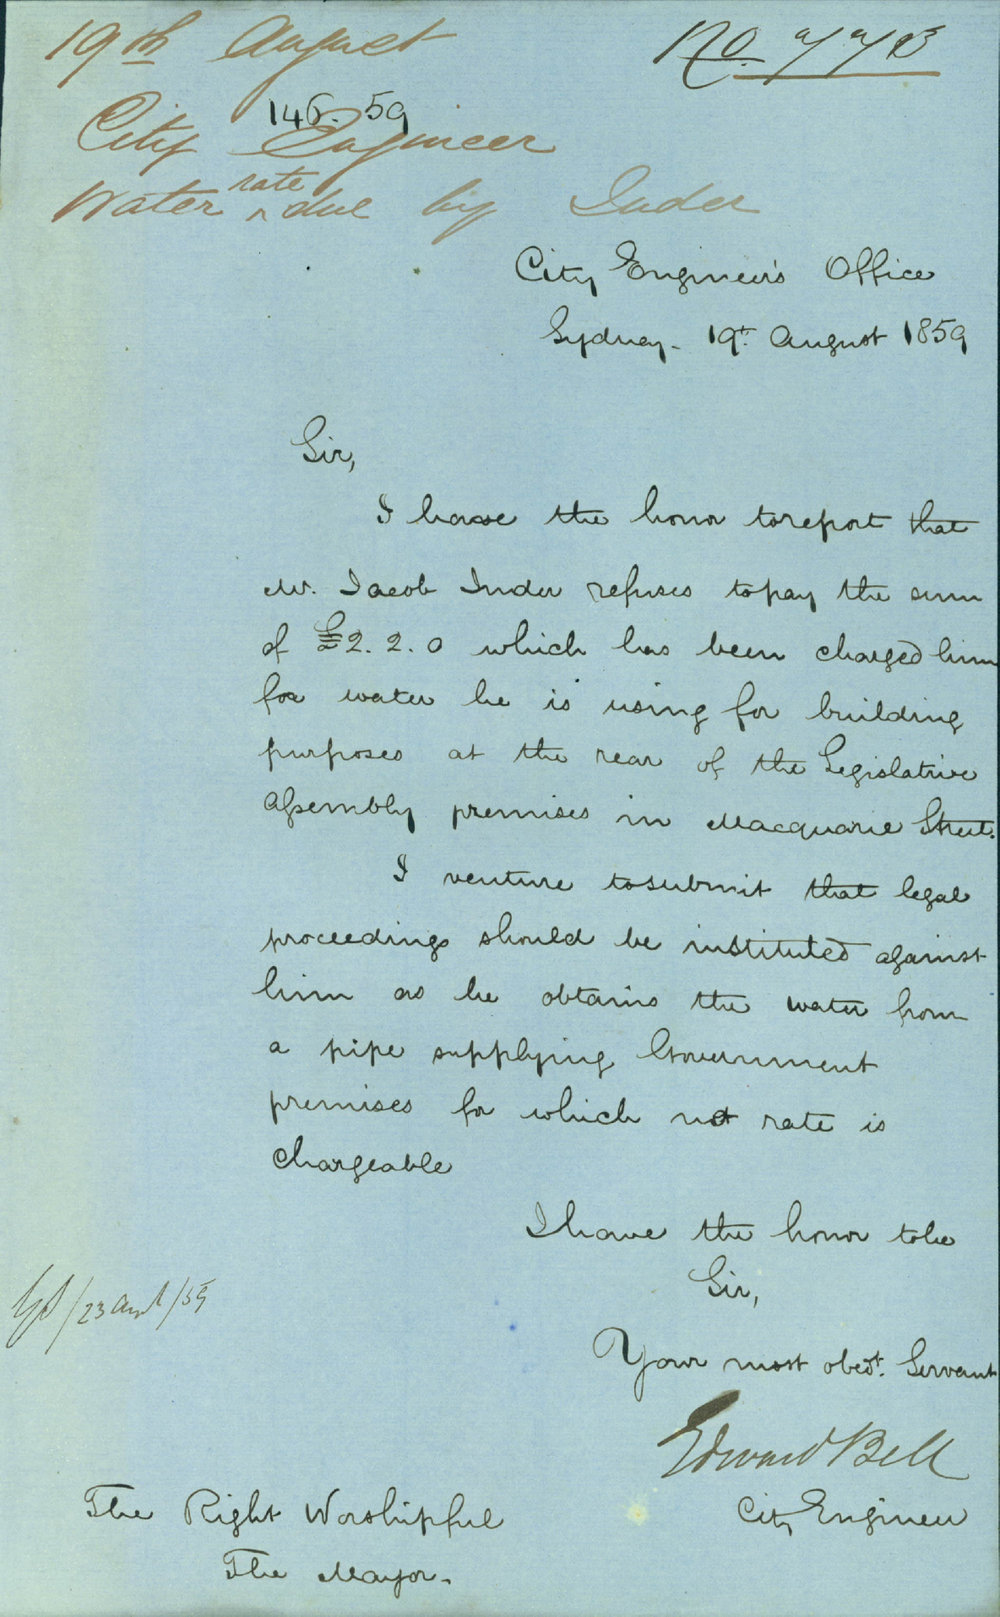 19th August
No. 773
146. 59
City Engineer
Water rate due by Inder
City Engineer's Office
Sydney. 19t. August 1859
Sir,
I have the honor to report that
Mr. Jacob Inder refuses to pay the sum
of £2. 2. 0 which has been charged him
for water he is using for building
purposes at the rear of the Legislative
Assembly premises in Macquarie Street.
I venture to submit that legal
proceedings should be instituted against
him as he obtains the water from
a pipe supplying Government
premises for which not rate is
chargeable
I have the honor to be
Sir,
/23 Augt/59
Your most obedt. Servant
Edward Bell
City Engineer
The Right Worshipful
The Mayor.